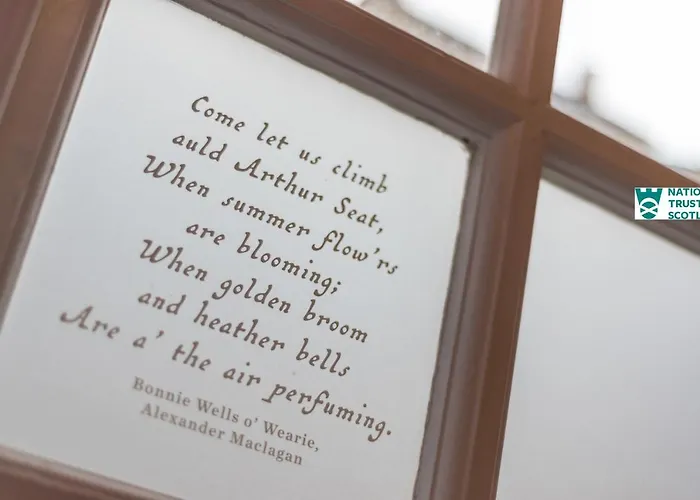 Come let us climb
auld Arthur Seat,
When summer flow'rs
are blooming;
When golden broom
and heather bells
Are a' the air perfuming.
Bonnie Wells o' Wearie,
Alexander Maclagan
TRUST